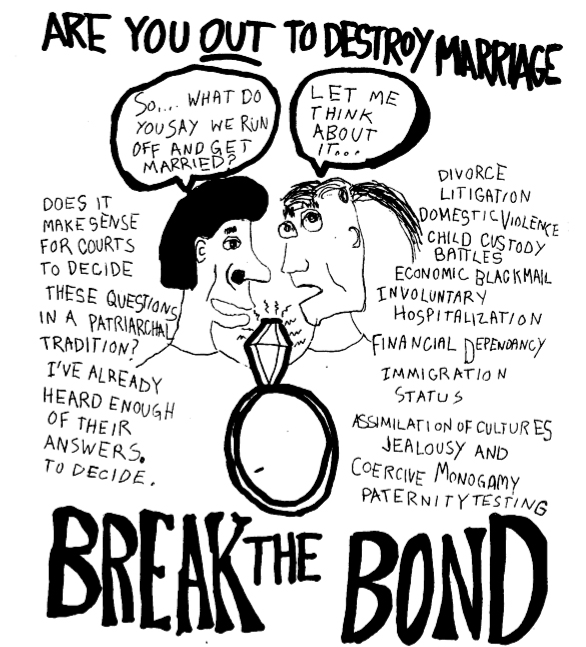 ARE YOU OUT TO DESTROY MARRIAGE
SO.... WHAT DO
YOU SAY WE RUN
OFF AND GET
MARRIED?
LET ME
THINK
ABOUT
IT...
DOES IT
MAKE SENSE
FOR COURTS
TO DECIDE
THESE QUESTIONS
IN A PATRIARCHAL
TRADITION?
I'VE ALREADY
HEARD ENOUGH
OF THEIR
ANSWERS.
TO DECIDE.
DIVORCE
LITIGATION
DOMESTIC VIOLENCE
CHILD CUSTODY
BATTLES
ECONOMIC BLACKMAIL
INVOLUNTARY
HOSPITALIZATION
FINANCIAL DEPENDANCY
IMMIGRATION
STATUS
ASSIMILATION OF CULTURES
JEALOUSY AND
COERCIVE MONOGAMY
PATERNITY TESTING
BREAK THE BOND